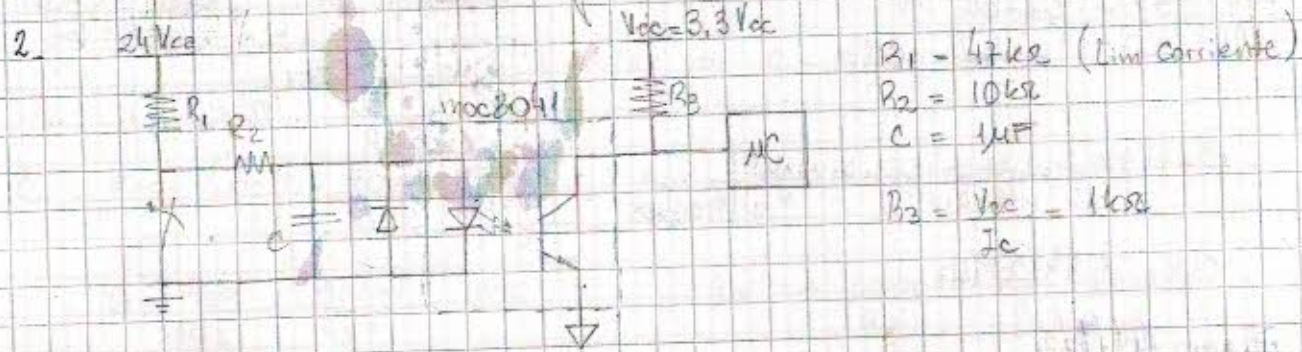 2_
24 Vcc
R1
R2
C
moc8041
Vcc=3,3 Vcc
R3
µC
R1 = 47kΩ (Lim Corriente)
R2 = 10kΩ
C = 1µF
R3 = Vcc / Ic = 1kΩ